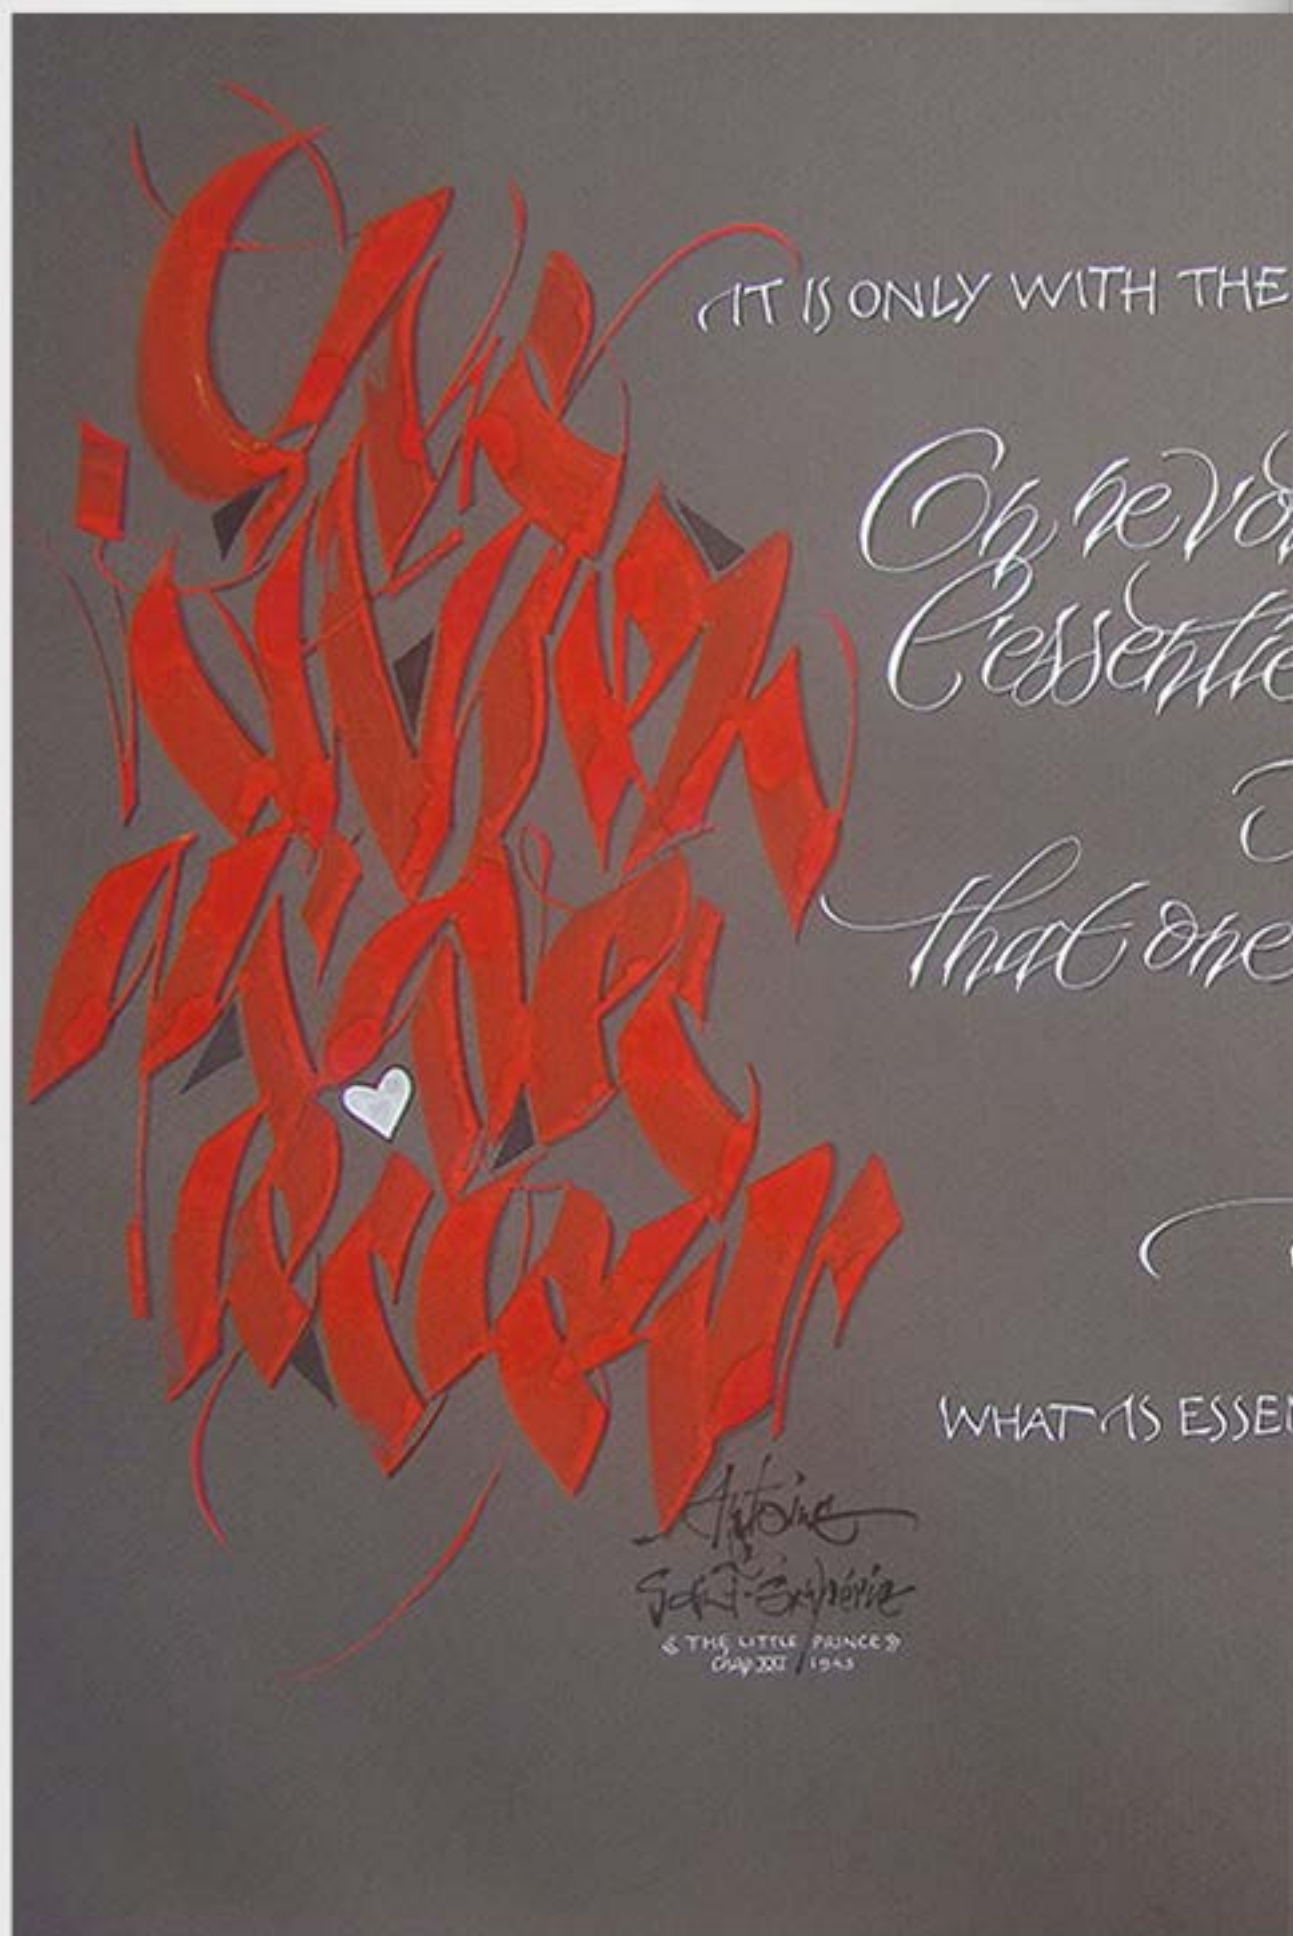 On ne
qu'avec
le cœur
IT IS ONLY WITH THE
On ne Voi
l'essentie
that one
WHAT IS ESSE
Antoine
Saint-Exupérie
« THE LITTLE PRINCE »
Chap XXI 1943